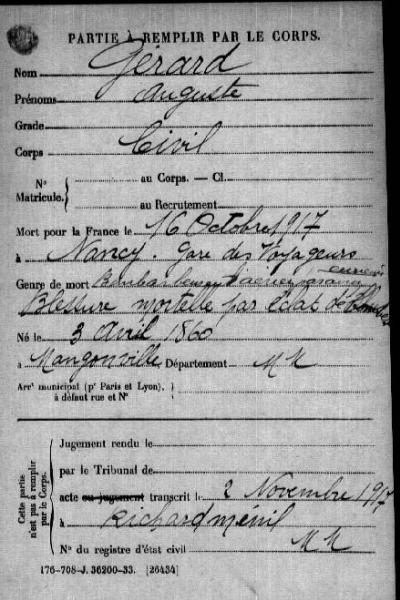 PARTIE À REMPLIR PAR LE CORPS.
Nom Gérard
Prénoms Auguste
Grade
Corps Civil
N° Matricule. { au Corps. — Cl.
au Recrutement
Mort pour la France le 16 Octobre 1917
à Nancy. Gare des Voyageurs
Genre de mort Bombardement
Blessure mortelle par éclat de bombe
Né le 3 Avril 1860
à Mangonville Département M M
Arr^t municipal (p^r Paris et Lyon), à défaut rue et N°
Cette partie n'est pas à remplir par le Corps.
Jugement rendu le
par le Tribunal de
acte ou jugement transcrit le 2 Novembre 1917
à Richardménil
N° du registre d'état civil M M
176-708-J. 36200-33. [26434]